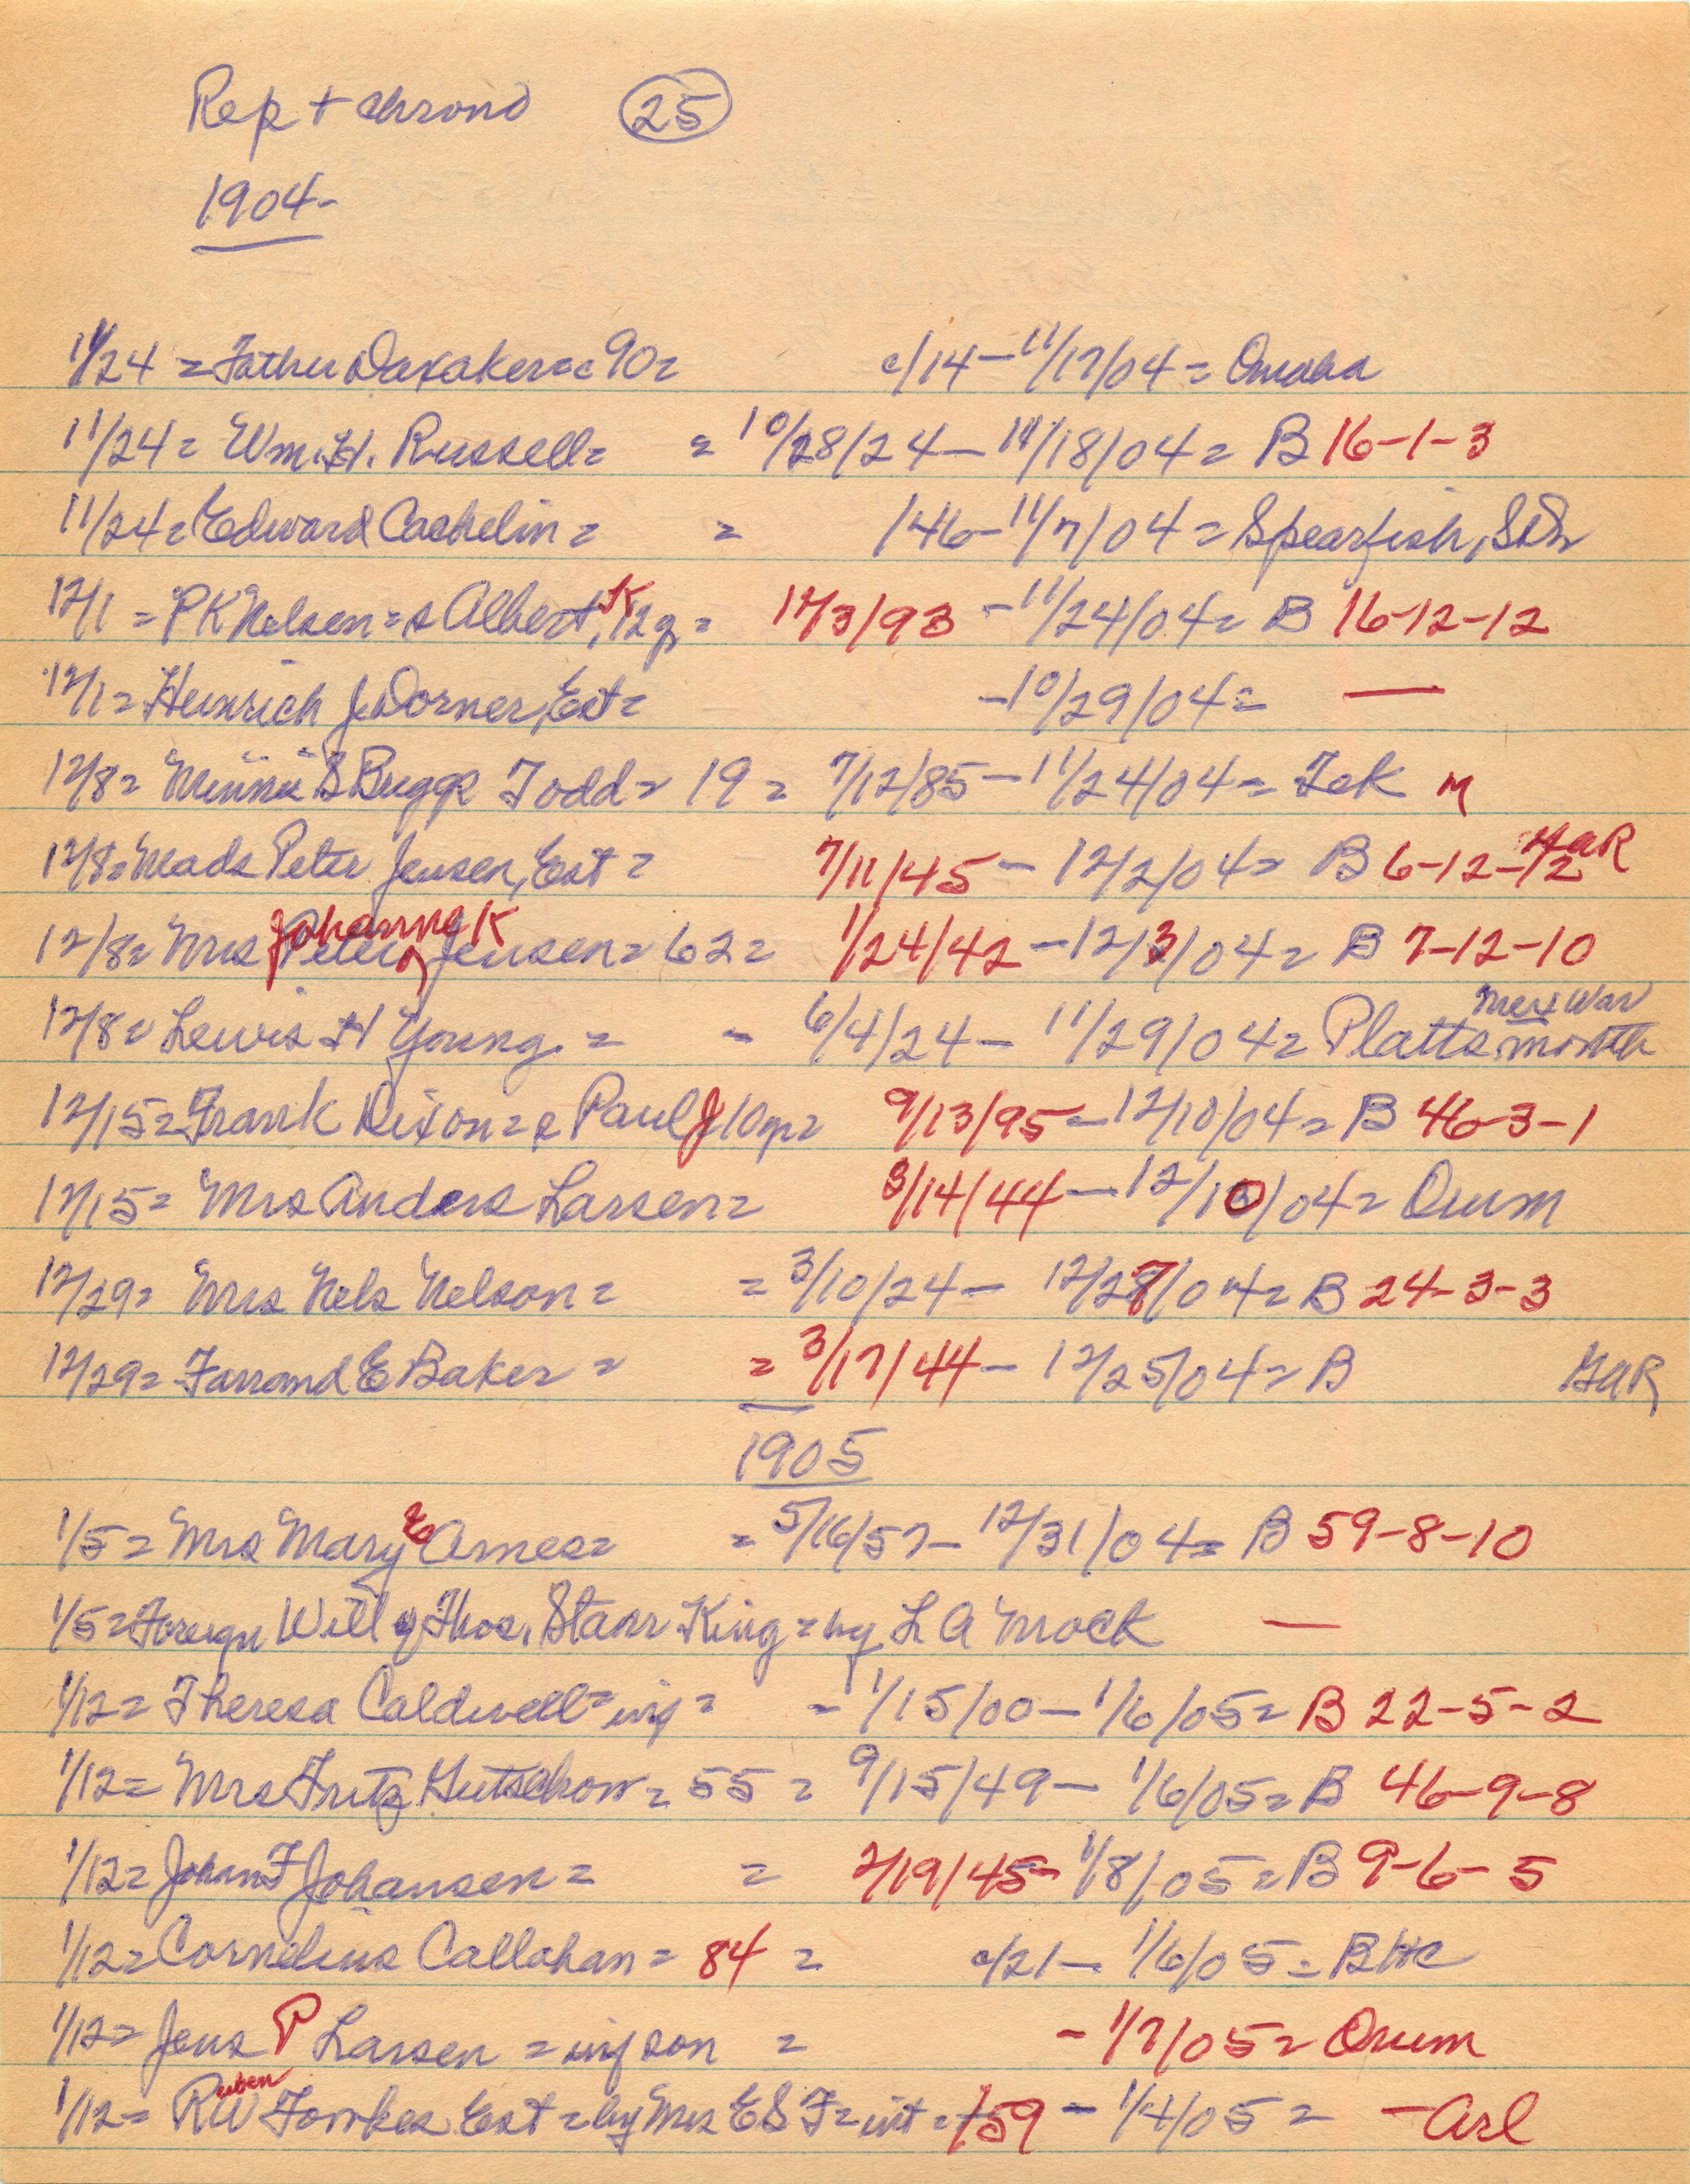 Rep + chrono 25
1904-
11/24 = Father Daxaker = c 90 = c/14 - 11/17/04 = Omaha
11/24 = Wm. H. Russell = = 10/28/24 - 11/18/04 = B 16-1-3
11/24 = Edward Cachelin = = /46 - 11/7/04 = Spearfish, SD
12/1 = PK Nelsen = s Albert K, 12 y = 12/3/93 - 11/24/04 = B 16-12-12
12/1 = Heinrich J Dorner, Est = - 10/29/04 = —
12/8 = Minnie S Bugge Todd = 19 = 7/12/85 - 11/24/04 = Tek M
12/8 = Mads Peter Jensen, Est = 7/11/45 - 12/2/04 = B 6-12-12 GAR
12/8 = Mrs Peter Johanne K Jensen = 62 = 1/24/42 - 12/3/04 = B 7-12-10
12/8 = Lewis H Young = - 6/4/24 - 11/29/04 = Plattsmouth Mex War
12/15 = Frank Dixon = s Paul J 10 yr = 9/13/95 - 12/10/04 = B 46-3-1
12/15 = Mrs Anders Larsen = 3/14/44 - 12/10/04 = Orum
12/29 = Mrs Nels Nelson = = 3/10/24 - 12/27/04 = B 24-3-3
12/29 = Farrand E Baker = = 3/17/44 - 12/25/04 = B GAR
1905
1/5 = Mrs Mary E Ames = = 5/16/57 - 12/31/04 = B 59-8-10
1/5 = Foreign Will of Thos. Starr King = by L A Mock —
1/12 = Theresa Caldwell = inf = - 1/15/00 - 1/6/05 = B 22-5-2
1/12 = Mrs Fritz Gutschow = 55 = 9/15/49 - 1/6/05 = B 46-9-8
1/12 = Johan F Johansen = = 2/19/45 - 1/8/05 = B 9-6-5
1/12 = Cornelius Callahan = 84 = c/21 - 1/6/05 = B HC
1/12 = Jens P Larsen = inf son = - 1/7/05 = Orum
1/12 = Reuben W Fowkes Est = by Mrs E S F = wit = /59 - 1/4/05 = - Arl